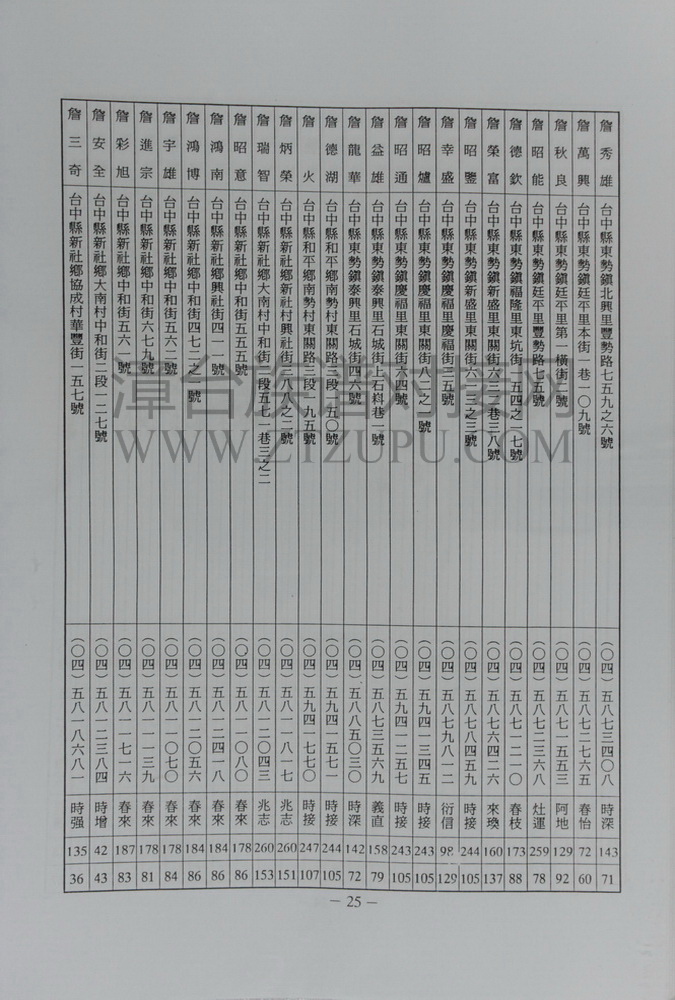 詹秀雄 台中縣東勢鎮北興里豐勢路七五九之六號 (〇四)五八七三四〇八 時深 143 71
詹萬興 台中縣東勢鎮廷平里本街一巷一〇九號 (〇四)五八七二七六五 春怡 72 60
詹秋良 台中縣東勢鎮廷平里第一橫街二號 (〇四)五八七一五五三 阿地 129 92
詹昭能 台中縣東勢鎮廷平里豐勢路七五號 (〇四)五八七二三六八 灶運 259 78
詹德欽 台中縣東勢鎮福隆里東坑街一五四之一七號 (〇四)五八七一二一〇 春枝 173 88
詹榮富 台中縣東勢鎮新盛里東關街六三二巷三八號 (〇四)五八七六四二六 來喚 160 137
詹昭鑒 台中縣東勢鎮新盛里東關街六一三之三號 (〇四)五八七八四五九 時接 244 105
詹幸盛 台中縣東勢鎮慶福里慶福街三五號 (〇四)五八七九八一二 衍信 98 129
詹昭爐 台中縣東勢鎮慶福里東關街八二之一號 (〇四)五九四一三四五 時接 243 105
詹昭通 台中縣東勢鎮慶福里東關街六四號 (〇四)五九四一二五七 時接 243 105
詹益雄 台中縣東勢鎮泰興里石城街上石嵙巷一號 (〇四)五八七三五六九 義直 158 79
詹龍華 台中縣東勢鎮泰興里石城街四六號 (〇四)五八八五〇三〇 時深 142 72
詹德湖 台中縣和平鄉南勢村東關路三段一五〇號 (〇四)五九四一五七一 時接 244 105
詹火 台中縣和平鄉南勢村東關路三段一九五號 (〇四)五九四一七七〇 時接 247 107
詹炳榮 台中縣新社鄉新社村興社街三八八之二號 (〇四)五八一一八一七 兆志 260 151
詹瑞智 台中縣新社鄉大南村中和街三段五七一巷三之二 (〇四)五八一二〇四三 兆志 260 153
詹昭意 台中縣新社鄉中和街五五五號 (〇四)五八一一〇八〇 春來 178 86
詹鴻南 台中縣新社鄉興社街四一一號 (〇四)五八一二四一八 春來 184 86
詹鴻博 台中縣新社鄉中和街四七二之一號 (〇四)五八一二〇五六 春來 184 86
詹宇雄 台中縣新社鄉中和街五六二號 (〇四)五八一一〇七〇 春來 178 84
詹進宗 台中縣新社鄉中和街六七九號 (〇四)五八一一一三九 春來 178 81
詹彩旭 台中縣新社鄉中和街五六一號 (〇四)五八一一七一六 春來 187 83
詹安全 台中縣新社鄉大南村中和街二段一二七號 (〇四)五八一二三八四 時增 42 43
詹三奇 台中縣新社鄉協成村華豐街一五七號 (〇四)五八一八六八一 時强 135 36
— 25 —
漳台族譜對接网
WWW.ZTZUPU.COM